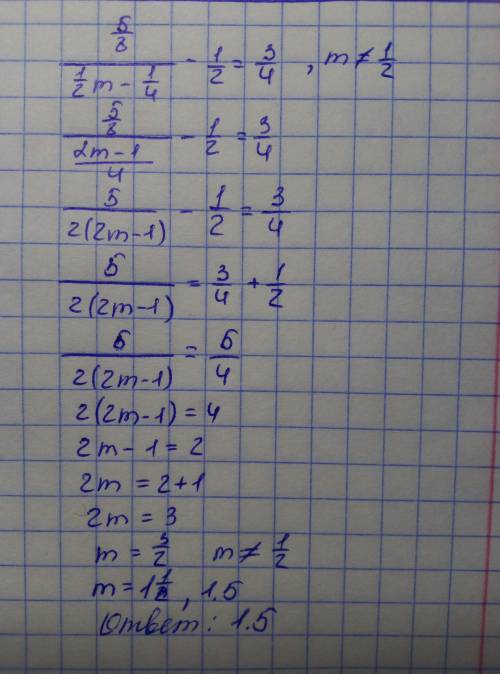 (5/8)/(1/2 m - 1/4) - 1/2 = 3/4 , m ≠ 1/2
(5/8)/((2m-1)/4) - 1/2 = 3/4
5/(2(2m-1)) - 1/2 = 3/4
5/(2(2m-1)) = 3/4 + 1/2
5/(2(2m-1)) = 5/4
2(2m-1) = 4
2m - 1 = 2
2m = 2+1
2m = 3
m = 3/2 m ≠ 1/2
m = 1 1/2, 1.5
Ответ: 1.5